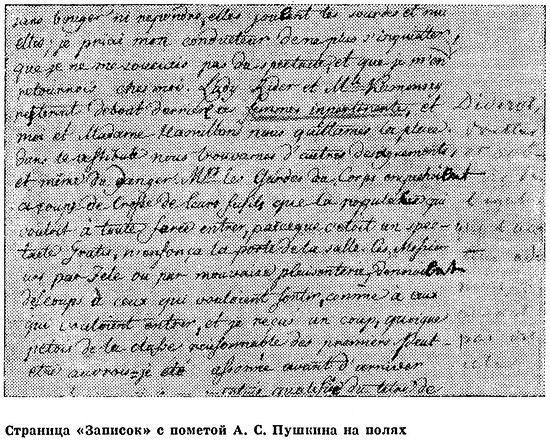 sans bouger ni repondre, elles jouent les sourdes et mu
elles, je priai mon conducteur de ne plus s'inquieter,
que je ne me souciois pas du spectacle, et que je m'en
retournois chez moi. Lady Rider et Mlle Kamensky
resterent debout derriere ces femmes impertinentes, et
moi et Madame Hamilton nous quittames la place.
dans le vestibule nous trouvames d'autres desagrements,
et même du danger. Mrs les Gardes du Corps empechoient
a coups de Crosse de leurs fusils que la populace qui
vouloit à toute force entrer, parceque c'etoit un spec-
tacle gratis, n'enfonça la porte de la salle. Ces Messie
urs par zele ou par mauvaise plaisanterie, donnoient
des coups à ceux qui vouloient sortir, comme a ceux
qui vouloient entrer, et je reçus un coup, quoique
j'etois de la classe raisonnable des premiers peut-
etre aurois-je eté assommé avant d'arriver
qualité du
Страница «Записок» с пометой А. С. Пушкина на полях